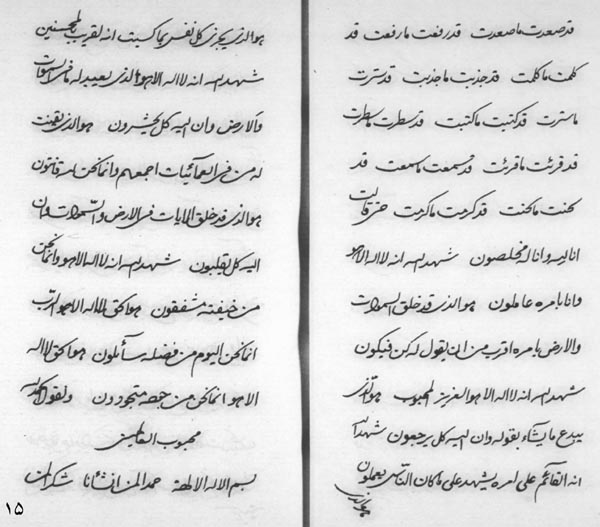 قد صعدت ما صعدت قد رفعت ما رفعت قد
كلمت ما كلمت قد جذبت ما جذبت قد سترت
ما سترت قد كتبت ما كتبت قد سطرت ما سطرت
قد قرئت ما قرئت قد سمعت ما سمعت قد
ما كنت قد كرمت ما كرمت
انا لله وانا له مخلصون شهد الله انه لا اله الا هو
وانا بامره عاملون هو الذي قد خلق السموات
والارض بامره اقرب من ان يقول له كن فيكون
شهد الله انه لا اله الا هو العزيز المحبوب هو الذي
يبدع ما يشاء بقوله وان اليه كل يرجعون شهد الله
انه القائم على امره يشهد على ما كان الناس يعملون
هو الذي
هو الذي يجزي كل نفس بما كسبت انه لقريب بالمحسنين
شهد الله انه لا اله الا هو الذي يعبد له ما في السموات
والارض وان اليه كل يحشرون هو الذي يقنت
له من في العمائيات اجمعهم وانما نحن له قانتون
هو الذي قد خلق الايات في الارض والسموات وان
اليه كل يقلبون شهد الله انه لا اله الا هو وانما نحن
من خيفته مشفقون هو الحق لا اله الا هو الرب
انما نحن اليوم من فضله سائلون هو الحق لا اله
الا هو انما نحن من متجودون ونقول
محبوب العالمين
بسم الاله الالهة حمد المن
۱۵